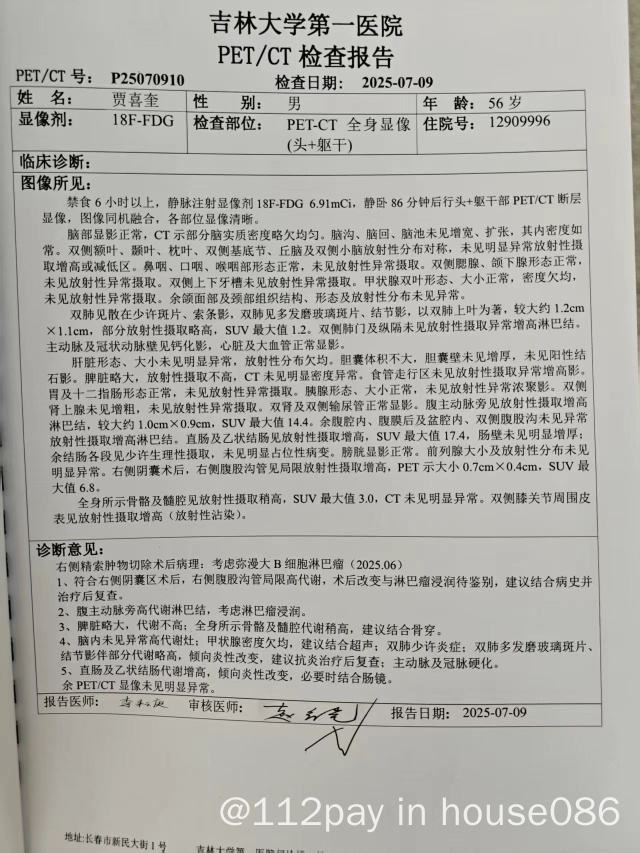 吉林大学第一医院
PET/CT 检查报告
PET/CT 号： P25070910 检查日期： 2025-07-09
姓 名： 贾喜奎 性 别： 男 年 龄： 56 岁
显像剂： 18F-FDG 检查部位： PET-CT 全身显像 住院号： 12909996
(头+躯干)
临床诊断：
图像所见：
禁食 6 小时以上，静脉注射显像剂 18F-FDG 6.91mCi，静卧 86 分钟后行头+躯干部 PET/CT 断层
显像，图像同机融合，各部位显像清晰。
脑部显影正常，CT 示部分脑实质密度略欠均匀。脑沟、脑回、脑池未见增宽、扩张，其内密度如
常。双侧额叶、颞叶、枕叶、双侧基底节、丘脑及双侧小脑放射性分布对称，未见明显异常放射性摄
取增高或减低区。鼻咽、口咽、喉咽部形态正常，未见放射性异常摄取。双侧腮腺、颌下腺形态正常，
未见放射性异常摄取。双侧上下牙槽未见放射性异常摄取。甲状腺双叶形态、大小正常，密度欠均，
未见放射性异常摄取。余颌面部及颈部组织结构、形态及放射性分布未见异常。
双肺见散在少许斑片、索条影，双肺见多发磨玻璃斑片、结节影，以双肺上叶为著，较大约 1.2cm
×1.1cm，部分放射性摄取略高，SUV 最大值 1.2。双侧肺门及纵隔未见放射性摄取异常增高淋巴结。
主动脉及冠状动脉壁见钙化影，心脏及大血管正常显影。
肝脏形态、大小未见明显异常，放射性分布欠均。胆囊体积不大，胆囊壁未见增厚，未见阳性结
石影。脾脏略大，放射性摄取不高，CT 未见明显密度异常。食管走行区未见放射性摄取异常增高影。
胃及十二指肠形态正常，未见放射性异常摄取。胰腺形态、大小正常，未见放射性异常浓聚影。双侧
肾上腺未见增粗，未见放射性异常摄取。双肾及双侧输尿管正常显影。腹主动脉旁见放射性摄取增高
淋巴结，较大约 1.0cm×0.9cm，SUV 最大值 14.4。余腹腔内、腹膜后及盆腔内、双侧腹股沟未见异常
放射性摄取增高淋巴结。直肠及乙状结肠见放射性摄取增高，SUV 最大值 17.4，肠壁未见明显增厚；
余结肠各段见少许生理性摄取，未见明显占位性病变。膀胱显影正常。前列腺大小及放射性分布未见
明显异常。右侧阴囊术后，右侧腹股沟管见局限放射性摄取增高，PET 示大小 0.7cm×0.4cm，SUV 最
大值 6.8。
全身所示骨骼及髓腔见放射性摄取稍高，SUV 最大值 3.0，CT 未见明显异常。双侧膝关节周围皮
表见放射性摄取增高（放射性沾染）。
诊断意见：
右侧精索肿物切除术后病理：考虑弥漫大 B 细胞淋巴瘤（2025.06）
1、符合右侧阴囊区术后，右侧腹股沟管局限高代谢，术后改变与淋巴瘤浸润待鉴别，建议结合病史并
治疗后复查。
2、腹主动脉旁高代谢淋巴结，考虑淋巴瘤浸润。
3、脾脏略大，代谢不高；全身所示骨骼及髓腔代谢稍高，建议结合骨穿。
4、脑内未见异常高代谢灶；甲状腺密度欠均，建议结合超声；双肺少许炎症；双肺多发磨玻璃斑片、
结节影伴部分代谢略高，倾向炎性改变，建议抗炎治疗后复查；主动脉及冠脉硬化。
5、直肠及乙状结肠代谢增高，倾向炎性改变，必要时结合肠镜。
余 PET/CT 显像未见明显异常。
报告医师： 审核医师： 报告日期： 2025-07-09
@112pay in house086
地址:长春市新民大街 1 号